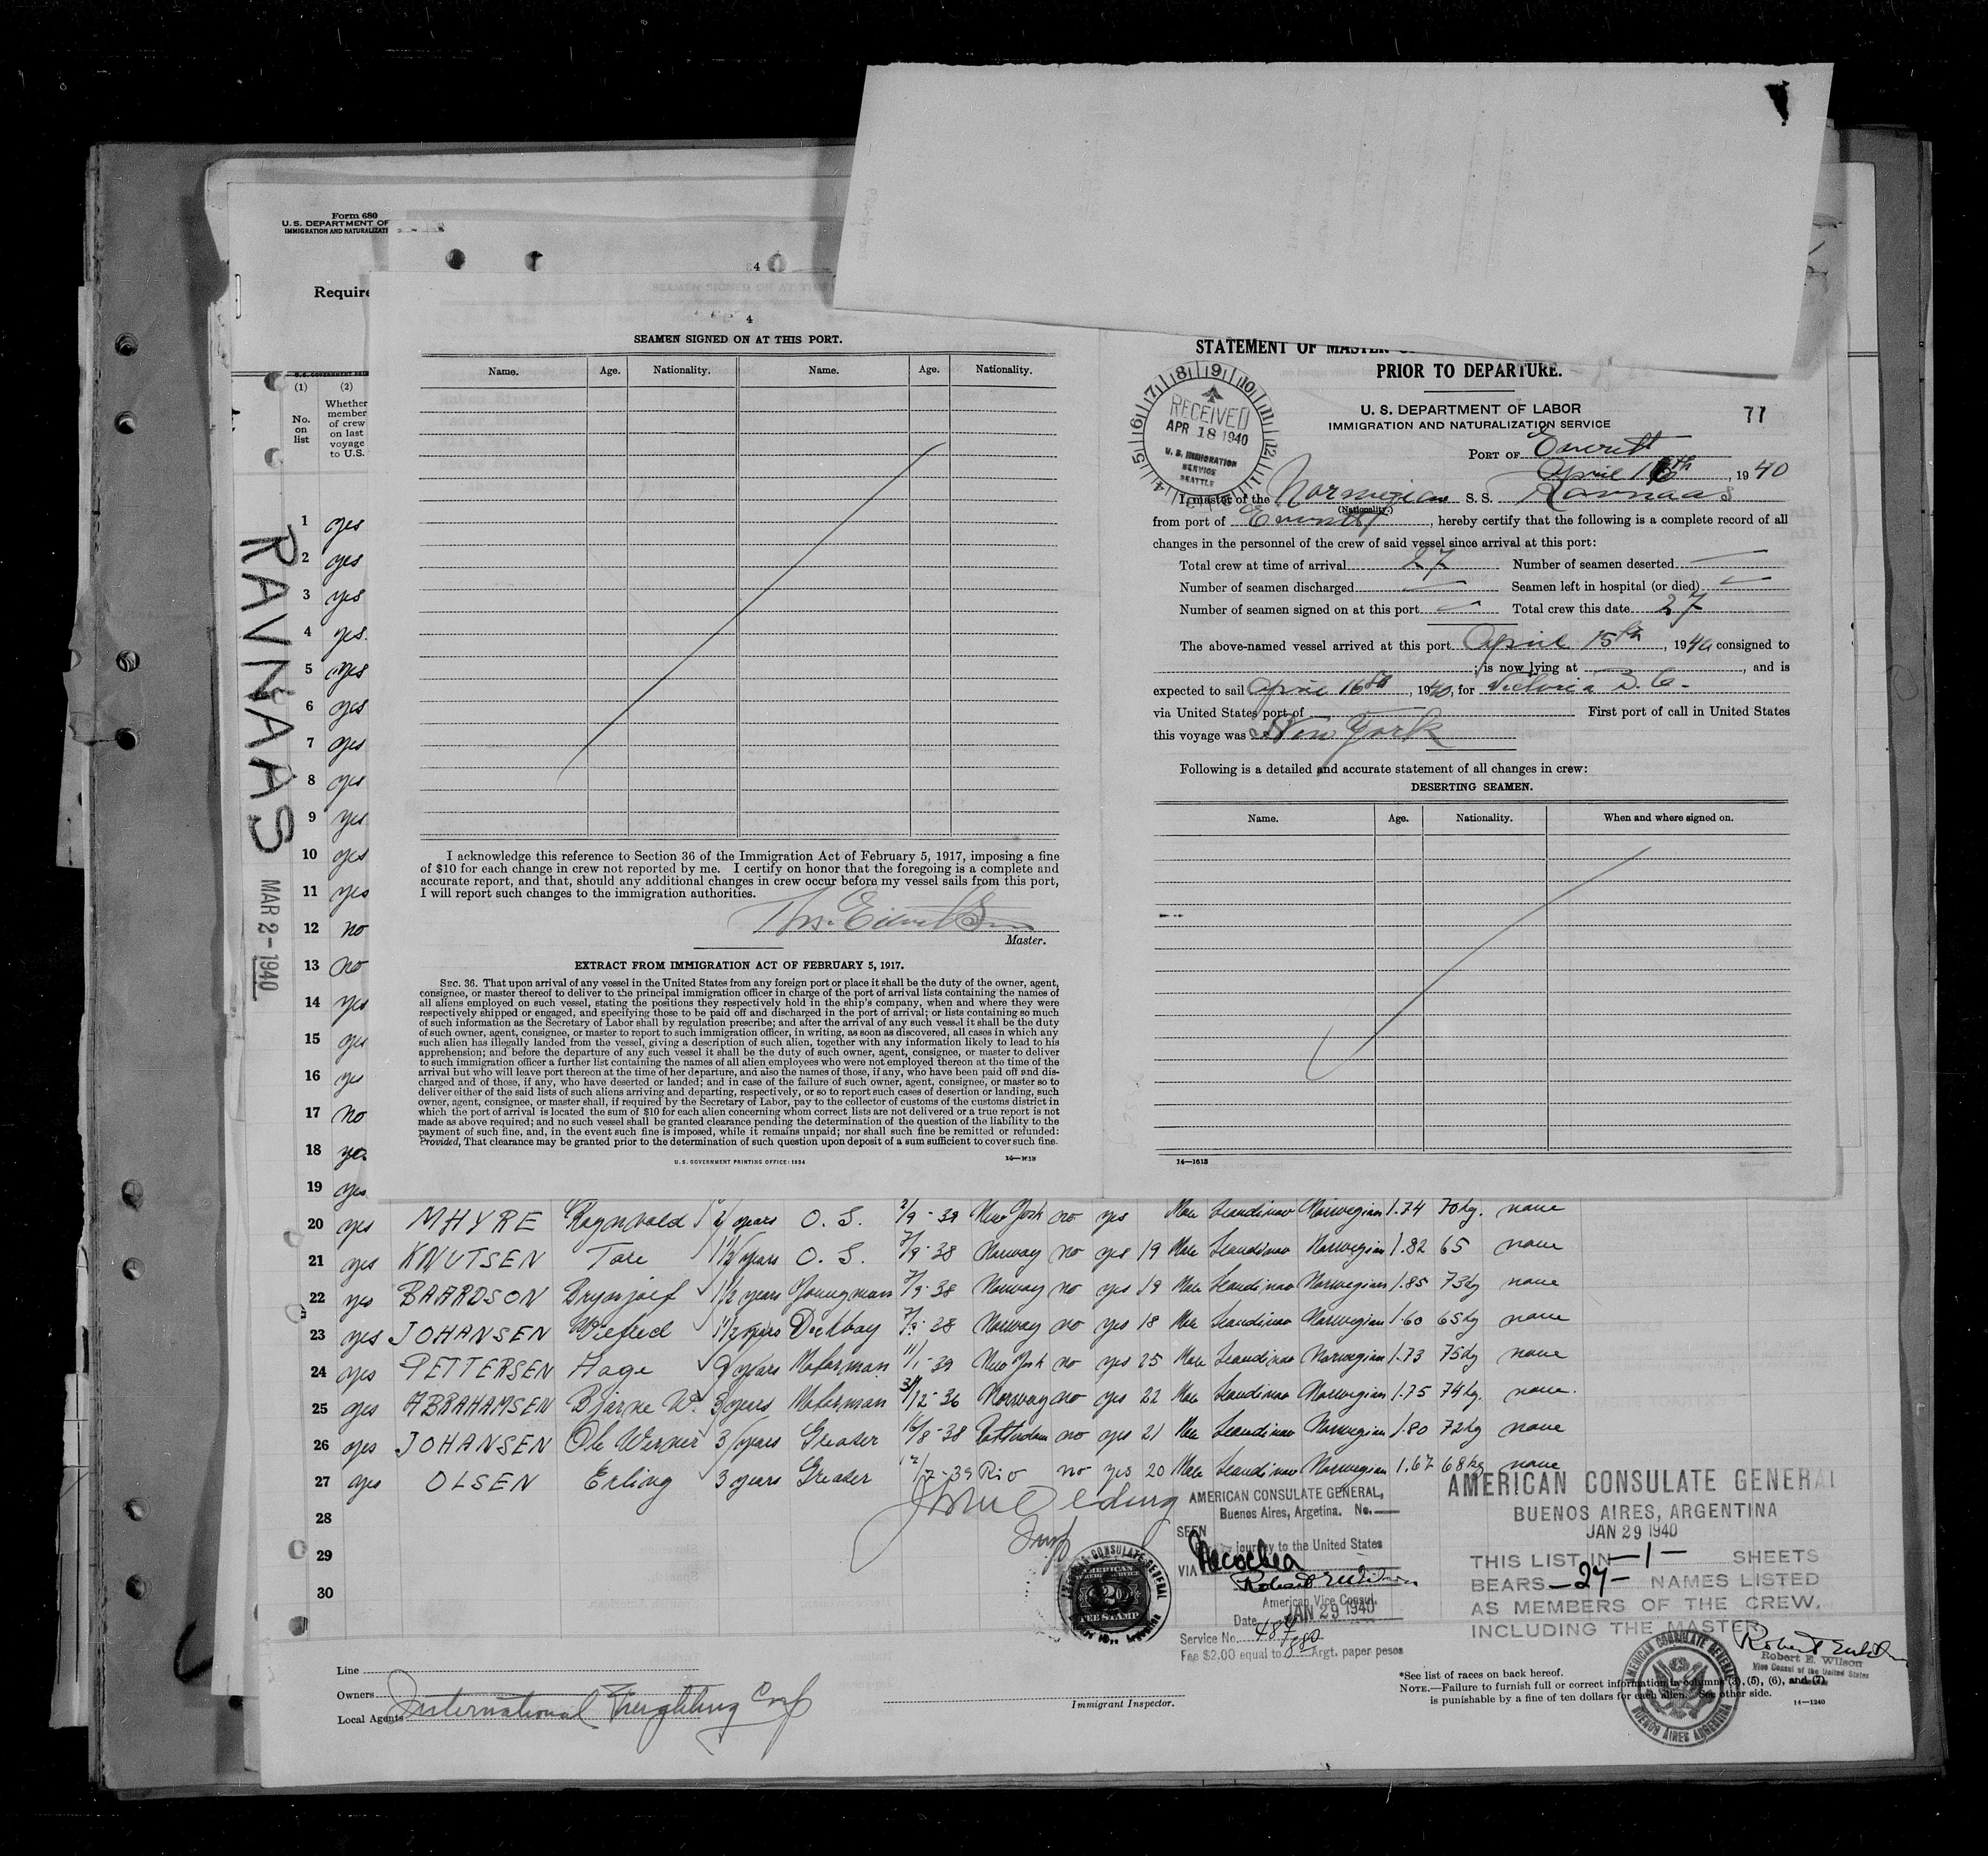 Form 680
U. S. DEPARTMENT OF
IMMIGRATION AND
Require
(1) (2)
No. on list
Whether member of crew on last voyage to U.S.
1 yes
2 yes
3 yes
4 yes.
5 yes
6 yes
7 yes
8 yes
9 yes
10 yes
11 yes
12 no
13 no
14 yes
15 yes
16 yes
17 no
18 yes
19 yes
RAVNAAS
MAR 2-1940
4
4
SEAMEN SIGNED ON AT THIS PORT.
Name. Age. Nationality. Name. Age. Nationality.
I acknowledge this reference to Section 36 of the Immigration Act of February 5, 1917, imposing a fine
of $10 for each change in crew not reported by me. I certify on honor that the foregoing is a complete and
accurate report, and that, should any additional changes in crew occur before my vessel sails from this port,
I will report such changes to the immigration authorities.
Master.
EXTRACT FROM IMMIGRATION ACT OF FEBRUARY 5, 1917.
SEC. 36. That upon arrival of any vessel in the United States from any foreign port or place it shall be the duty of the owner, agent,
consignee, or master thereof to deliver to the principal immigration officer in charge of the port of arrival lists containing the names of
all aliens employed on such vessel, stating the positions they respectively hold in the ship's company, when and where they were
respectively shipped or engaged, and specifying those to be paid off and discharged in the port of arrival; or lists containing so much
of such information as the Secretary of Labor shall by regulation prescribe; and after the arrival of any such vessel it shall be the duty
of such owner, agent, consignee, or master to report to such immigration officer, in writing, as soon as discovered, all cases in which any
such alien has illegally landed from the vessel, giving a description of such alien, together with any information likely to lead to his
apprehension; and before the departure of any such vessel it shall be the duty of such owner, agent, consignee, or master to deliver
to such immigration officer a further list containing the names of all alien employees who were not employed thereon at the time of the
arrival but who will leave port thereon at the time of her departure, and also the names of those, if any, who have been paid off and dis-
charged and of those, if any, who have deserted or landed; and in case of the failure of such owner, agent, consignee, or master so to
deliver either of the said lists of such aliens arriving and departing, respectively, or so to report such cases of desertion or landing, such
owner, agent, consignee, or master shall, if required by the Secretary of Labor, pay to the collector of customs of the customs district in
which the port of arrival is located the sum of $10 for each alien concerning whom correct lists are not delivered or a true report is not
made as above required; and no such vessel shall be granted clearance pending the determination of the question of the liability to the
payment of such fine, and, in the event such fine is imposed, while it remains unpaid; nor shall such fine be remitted or refunded:
Provided, That clearance may be granted prior to the determination of such question upon deposit of a sum sufficient to cover such fine.
U. S. GOVERNMENT PRINTING OFFICE: 1934
STATEMENT OF MASTER
PRIOR TO DEPARTURE.
U. S. DEPARTMENT OF LABOR
IMMIGRATION AND NATURALIZATION SERVICE
77
RECEIVED
APR 18 1940
U. S. IMMIGRATION
SERVICE
SEATTLE
PORT OF Everett
April 16th, 1940
I, master of the Norwegian S. S. Ravnaas
(Nationality.)
from port of Everett, hereby certify that the following is a complete record of all
changes in the personnel of the crew of said vessel since arrival at this port:
Total crew at time of arrival 27 Number of seamen deserted
Number of seamen discharged Seamen left in hospital (or died)
Number of seamen signed on at this port Total crew this date 27
The above-named vessel arrived at this port April 15th, 1940 consigned to
; is now lying at , and is
expected to sail April 16th, 1940, for Victoria B. C.
via United States port of First port of call in United States
this voyage was New York
Following is a detailed and accurate statement of all changes in crew:
DESERTING SEAMEN.
Name. Age. Nationality. When and where signed on.
14—1613
20 yes MHYRE Ragnvald 2 years O. S. New York no yes Male Scandinav Norwegian 1.74 70kg. none
21 yes KNUTSEN Tore 1 1/2 years O. S. 7/9-38 Norway no yes 19 Male Scandinav Norwegian 1.82 65 none
22 yes BAARDSON Brynjolf 1 1/2 years Youngman 7/9-38 Norway no yes 19 Male Scandinav Norwegian 1.85 73kg none
23 yes JOHANSEN Wilfred 1 1/2 years Deckboy 7/9-38 Norway no yes 18 Male Scandinav Norwegian 1.60 65kg none
24 yes PETTERSEN Hage 9 years Motorman 11/1-39 New York no yes 25 Male Scandinav Norwegian 1.73 75kg none
25 yes ABRAHAMSEN Bjarne W. 3 years Motorman 12-36 Norway no yes 22 Male Scandinav Norwegian 1.75 74kg. none.
26 yes JOHANSEN Ole Werner 3 years Greaser 8-38 Rotterdam no yes 21 Male Scandinav Norwegian 1.80 72kg none
27 yes OLSEN Erling 3 years Greaser Rio no yes 20 Male Scandinav Norwegian 1.67 68kg none
28
29
30
AMERICAN CONSULATE GENERAL,
Buenos Aires, Argetina. No.
SEEN
journey to the United States
VIA Necochea
American Vice Consul.
Date JAN 29 1940
Service No. 484
Fee $2.00 equal to Argt. paper pesos
AMERICAN CONSULATE GENERAL
BUENOS AIRES, ARGENTINA
JAN 29 1940
THIS LIST IN -1- SHEETS
BEARS -27- NAMES LISTED
AS MEMBERS OF THE CREW,
INCLUDING THE MASTER
Robert E. Wilson
Vice Consul of the United States
AMERICAN CONSULATE GENERAL
BUENOS AIRES ARGENTINA
Line
Owners
Local Agents International Freighting Corp
Immigrant Inspector.
*See list of races on back hereof.
NOTE.—Failure to furnish full or correct information in columns (3), (5), (6), and (7)
is punishable by a fine of ten dollars for each alien. See other side.
14—1240